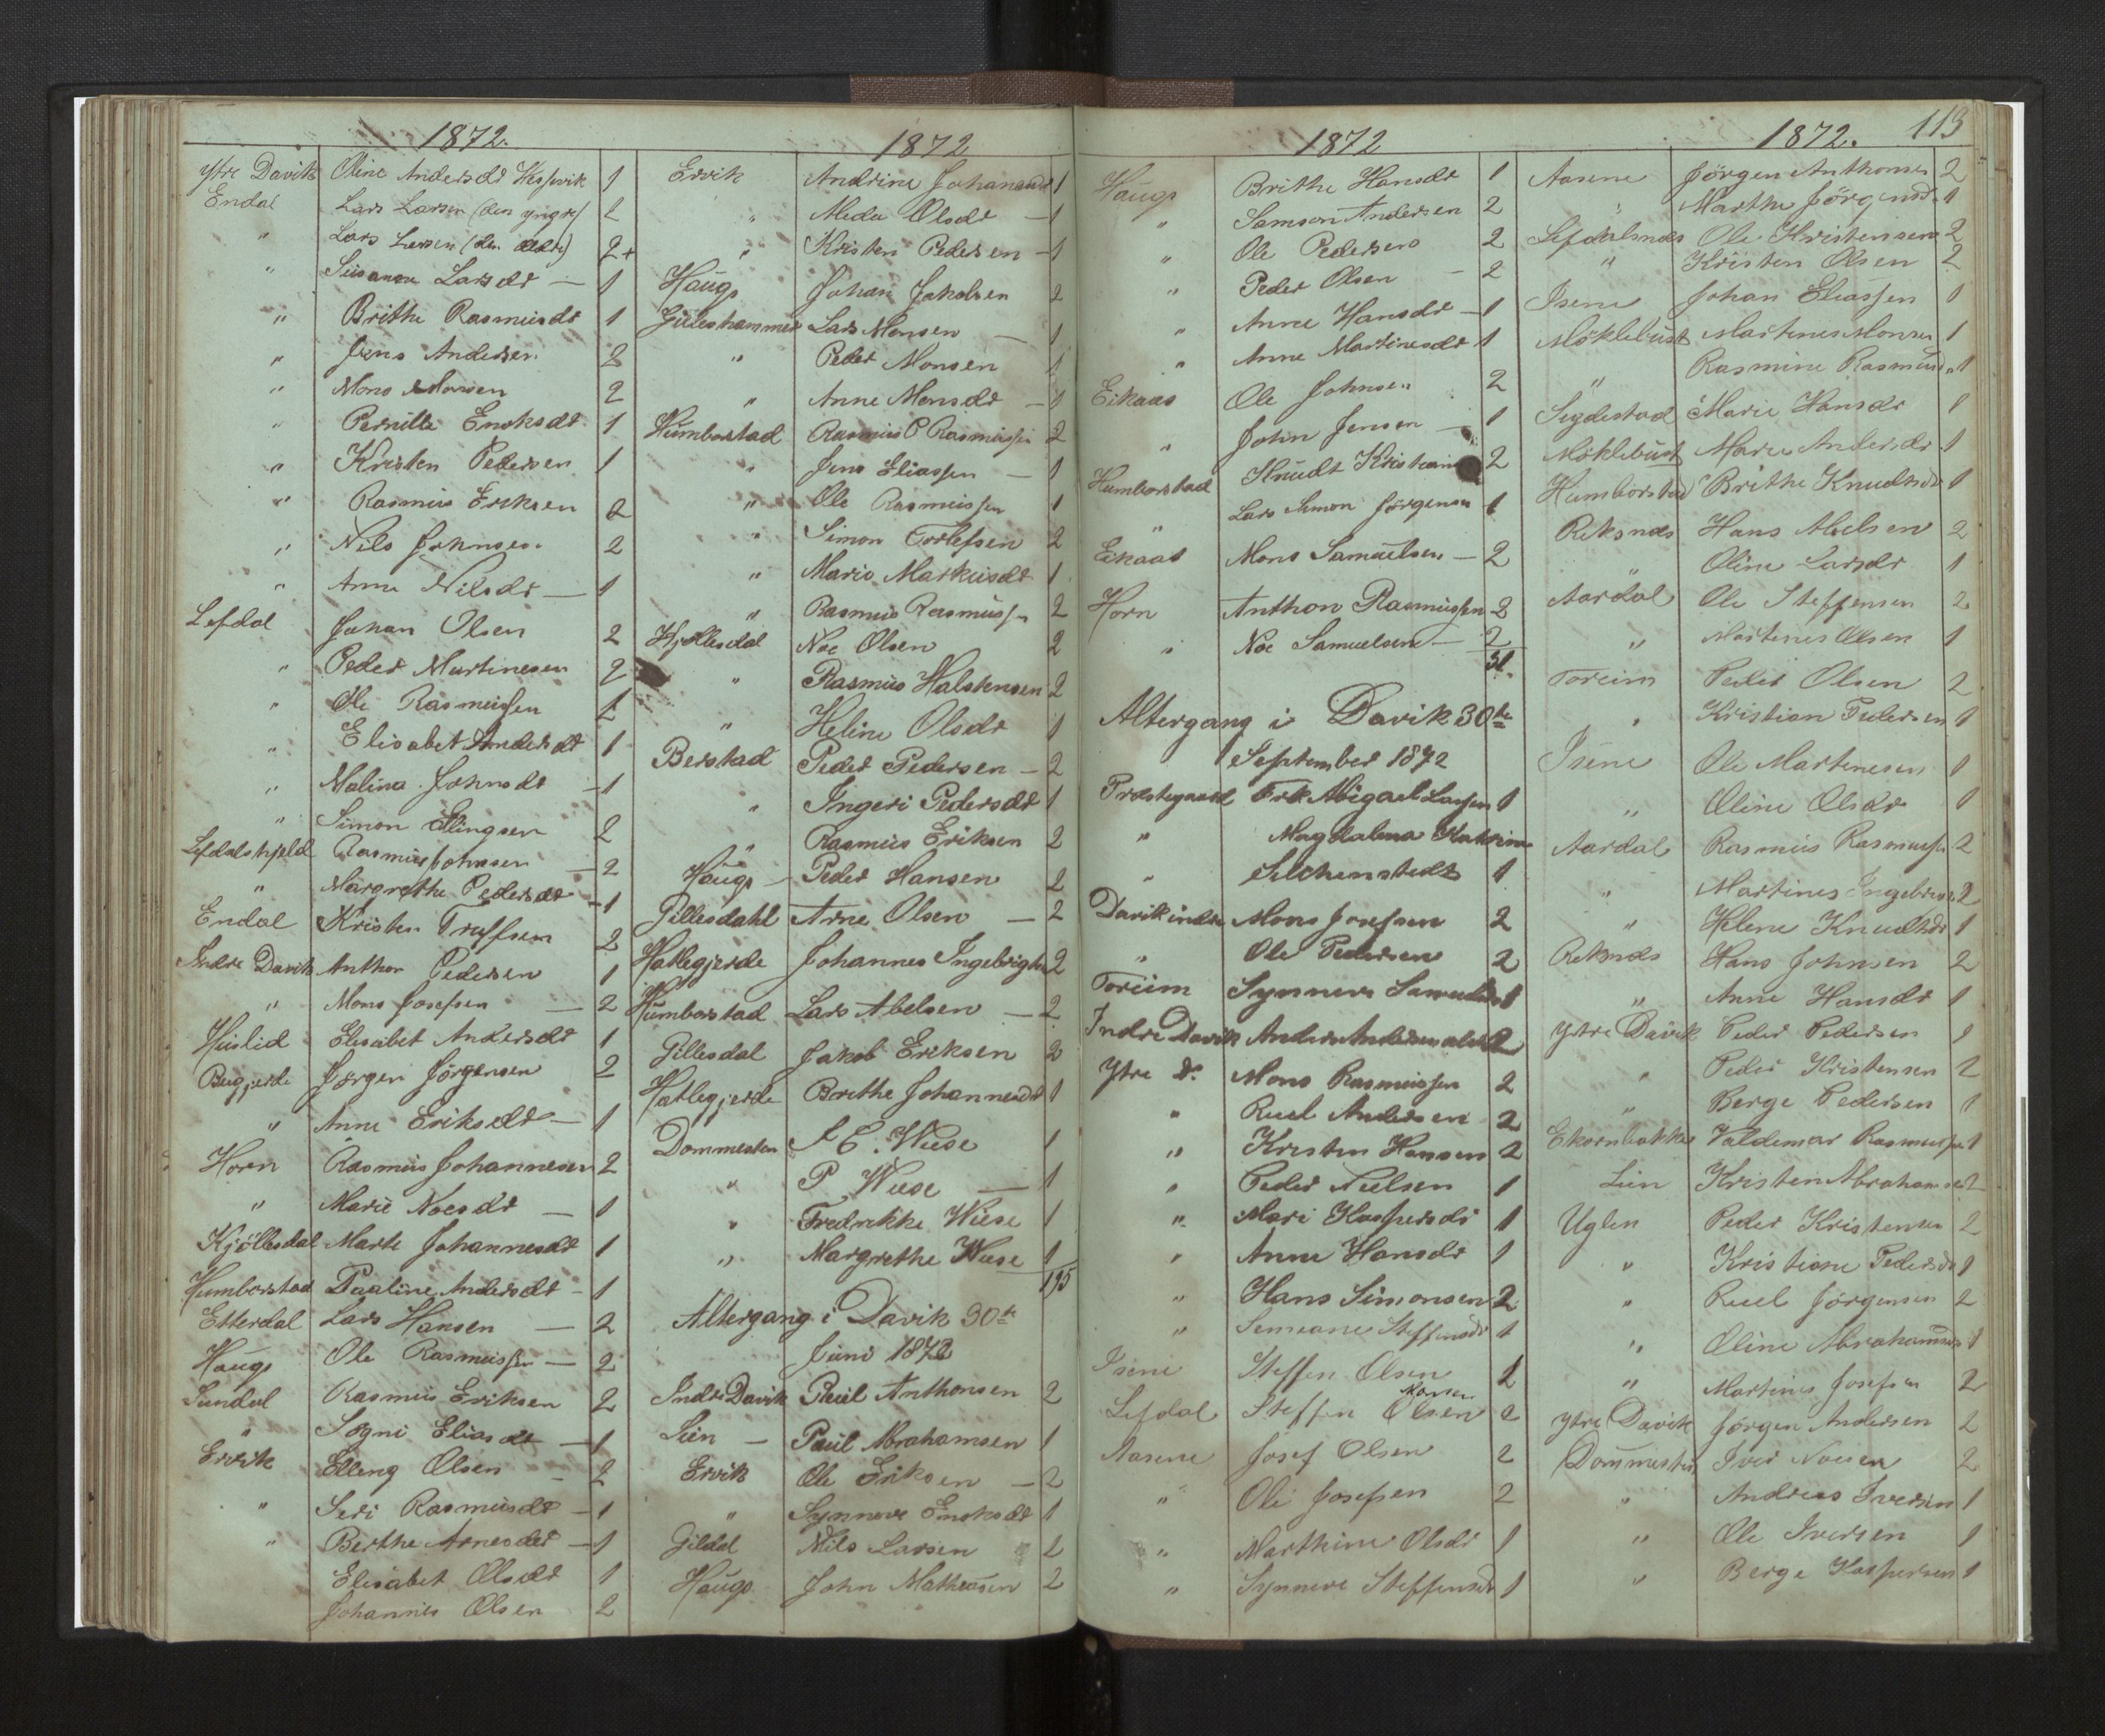 1872.
Ytre Davik Oline Andersdt Hessevik 1
Endal Lars Larsen (den yngre) 2
" Lars Larsen (den ældre) 2+
" Susanne Larsdt — 1
" Brithe Rasmusdt 1
" Jens Andersen 2
" Mons Monsen 2
" Pernille Enoksdt 1
" Kristen Pedersen 1
" Rasmus Eriksen 2
" Nils Johnsen 2
" Anne Nilsdt — 1
Lefdal Johan Olsen 2
" Peder Martinesen 2
" Ole Rasmussen 2
" Elisabet Andersdt 1
" Malina Johnsdt — 1
" Simon Ellingsen 2
Lefdalskjeld Rasmus Johnsen — 2
" Margrethe Pedersdt — 1
Endal Kristen 2
Indre Davik Anthon Pedersen 1
" Mons Josefsen — 2
Huslid Elisabet Andersdt 1
Jørgen Jørgensen 2
" Anne Eriksdt — 1
Horn Rasmus Johannesen 2
" Marie Noesdt — 1
Kjöllesdal Marte Johannesdt 1
Humborstad Paaline Andersdt — 1
Etterdal Lars Hansen — 2
Haugs Ole Rasmussen — 2
Rasmus Eriksen 2
" Sogni Eliasdt — 1
Ervik Elling Olsen — 2
" Seri Rasmusdt — 1
" Berthe Arnesdtr — 1
Elisabet Olsdt 1
Johannes Olsen 2
1872
Ervik Andrine Johansdt 1
" Olsdt — 1
" Kristen Pedersen — 1
Haugs Johan Jakobsen 2
Guleshammer Lars Monsen — 1
" Peder Monsen 1
" Anne Monsdt — 1
Humborstad Rasmus P Rasmussen 2
" Jens Eliassen — 1
" Ole Rasmussen 1
" Simon 2
" Marie Markusdt 1
" Rasmus Rasmussen 2
Hjøllesdal Noe Olsen 2
" Rasmus Halstensen 2
" Heline Olsdt 1
Berstad Peder Pedersen — 2
" Ingeri Pedersdt 1
" Rasmus Eriksen 2
Haugs — Peder Hansen 2
Pillesdahl Arne Olsen — 2
Hatlegjerde Johannes Ingebrigtsen 2
Humborstad Lars Abelsen — 2
Pillesdal Jakob Eriksen 2
Hatlegjerde Brithe Johannesdt 1
Dommesten E. Wiese 1
" P Wiese — 1
" Fredrikke Wiese 1
" Margrethe Wiese 1
195
Altergang i Davik 30te
Juni 1872
Indre Davik Paul Anthonsen 2
Lien — Paul Abrahamsen 1
Ervik Ole Eriksen — 2
" Synneve Enoksdt 1
Gildal Nils Larsen 2
Haugs John Matheasen 2
1872
Haugs Brithe Hansdt 1
" Samson Andersen 2
" Ole Pedersen 2
" Peder Olsen — 2
" Anne Hansdt — 1
" Anne Martinesdt 1
Eikaas Ole Johnsen 2
" John Jensen — 1
Humborstad Knudt 2
" Lars Simon Jørgensen 1
Eikaas Mons Samuelsen — 2
Horn Anthon Rasmussen 2
" Noe Samuelsen — 2
31.
Altergang i Davik 30te
September 1872
Præstegaard Frk Abigael Lassen 1
" Magdalena Katrine
" 1
Davik indre Mons Josefsen 2
" Ole Pedersen 2
Toreim Synneve Samuelsdt 1
Indre Davik Anders Andersen 2
Ytre D. Mons Rasmussen 2
" Ruel Andersen 2
" Kristen Hansen 2
" Peder Nielsen 1
" Mari Kaspersdt 1
" Anne Hansdt 1
" Hans Simonsen 2
" Semeane Steffensdt 1
Isene Steffen Olsen 2
Monsen
Lefdal Steffen Olsen 2
Aasene Josef Olsen 2
" Ole Josefsen 2
" Marthine Olsdt 1
" Synneve Steffensdt 1
1872. 113
Aasene Jörgen Anthonsen 2
" Marthe Jörgensdt 1
Lefdalsnes Ole Kristensen 2
" Kristen Olsen 2
Isene Johan Eliassen 1
Möklebust Martines Monsen 1
" Rasmine Rasmusdt 1
Sigdestad Marie Hansdt 1
Möklebust Marie Andersdt 1
Humborstad Brithe Knudtsdt 1
Reksnes Hans Abelsen 2
" Oline Larsdt 1
Aardal Ole Steffensen 2
" Martines Olsen 1
Toreim Peder Olsen 2
" Kristian Pedersen 1
Isene Ole Martinesen 1
" Oline Olsdt 1
Aardal Rasmus Rasmussen 2
" Martines 2
" Helene Knudtsdt 1
Reksnes Hans Johnsen 2
" Anne Hansdt 1
Ytre Davik Peder Pedersen 1
" Peder Kristensen 2
" Berge Pedersen 1
Ekornbakke Valdemar Rasmussen 1
Lien Kristen Abrahamsen 2
Uglen Peder Kristensen 2
" Kristiane Pedersdt 1
" Ruel Jörgensen 2
" Oline Abrahamsdt 1
" Martines Josefsen 2
Ytre Davik Jørgen Andersen 2
Dommesten Iver Noesen 2
" Andreas Iversen 1
" Ole Iversen 1
" Berge Kaspersen 1